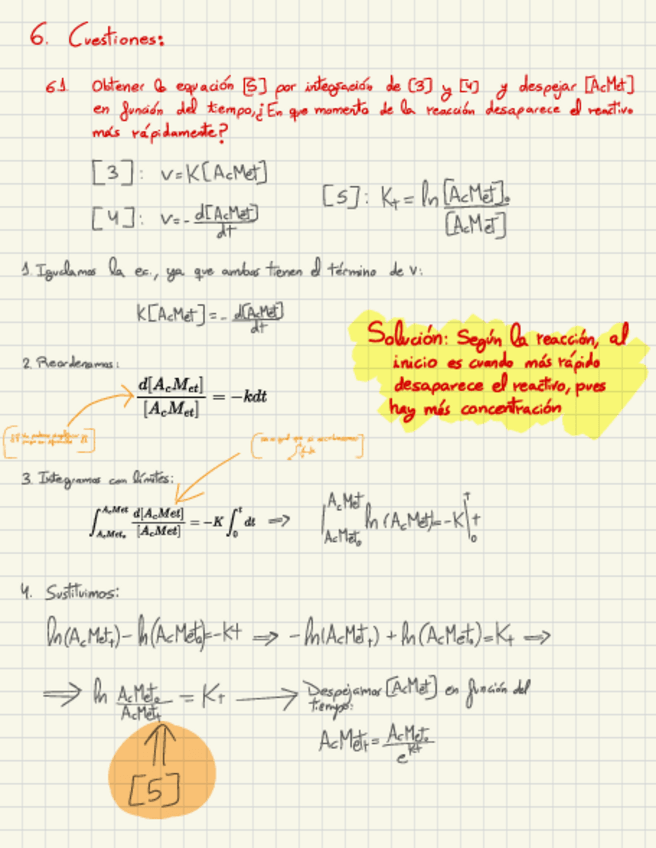 6. Cuestiones:
6.1 Obtener la equación [5] por integración de [3] y [4] y despejar [AcMet]
en función del tiempo,¿En que momento de la reacción desaparece el reactivo
más rápidamente?
[3]: v=K[AcMet]
[4]: v=-d[AcMet]/dt
[5]: Kt=ln [AcMet]₀/[AcMet]
1. Igualamos la ec., ya que ambas tienen el término de v:
K[AcMet]=-d[AcMet]/dt
Solución: Según la reacción, al
inicio es cuando más rápido
desaparece el reactivo, pues
hay más concentración
2. Reordenamos:
d[AcMet]/[AcMet] = -kdt
3. Integramos con límites:
∫_{AcMet₀}^{AcMet} d[AcMet]/[AcMet] = -K ∫₀ᵗ dt ⇒ |_{AcMet₀}^{AcMet} ln(AcMet)=-K|₀ᵗ t
4. Sustituimos:
ln(AcMetₜ)-ln(AcMet₀)=-Kt ⇒ -ln(AcMetₜ)+ln(AcMet₀)=Kt ⇒
⇒ ln AcMet₀/AcMetₜ = Kt → Despejamos [AcMet] en función del
tiempo:
AcMetₜ=AcMet₀/e^{Kt}
[5]